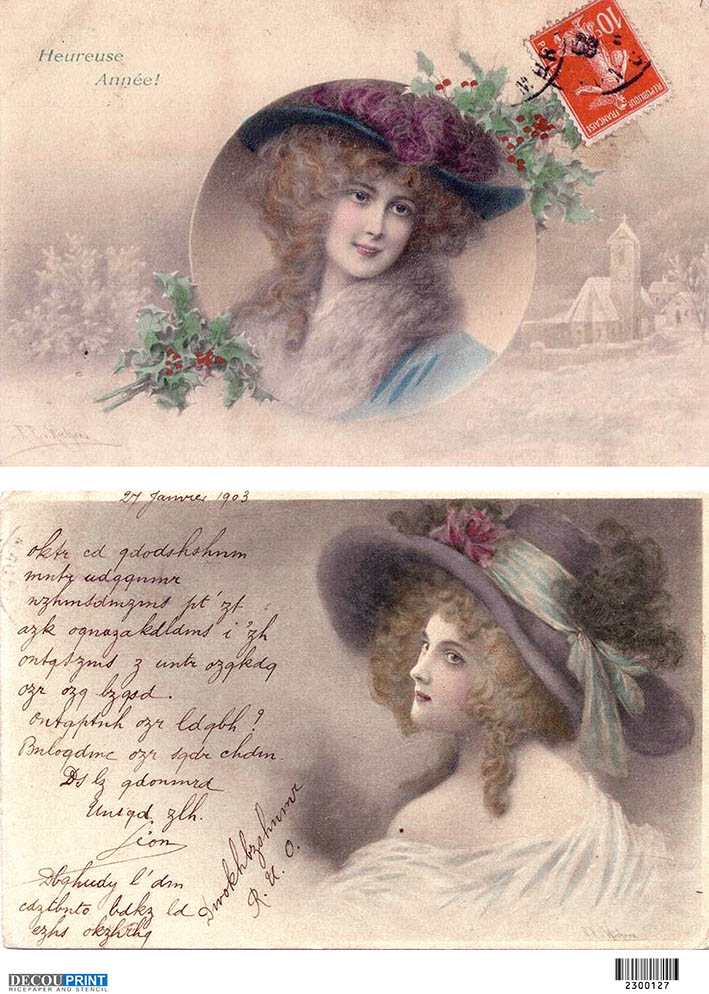 Heureuse
Année!
10c
POSTES
REPUBLIQUE FRANÇAISE
27 Janvier 1903
oktr cd qdodshshnm
mntr udqqnmr
lzhmsdmzms pt'zt
azk oqnazakdldms i'zh
ontqszms z untr ozqkdq
ozr ozq bzqsd.
Ontqptnh ozr ldqbh ?
Bnloqdmc ozr sqdr ahdm.
Ds lz qdonmrd
Unsqd zlh.
Léon
Dbqhudy l'dm
adztbnto bdkz ld
ezhs okzhrhq
Dwokhbzshnmr
R. U. O.
DECOUPRINT
RICEPAPER AND STENCIL
2300127